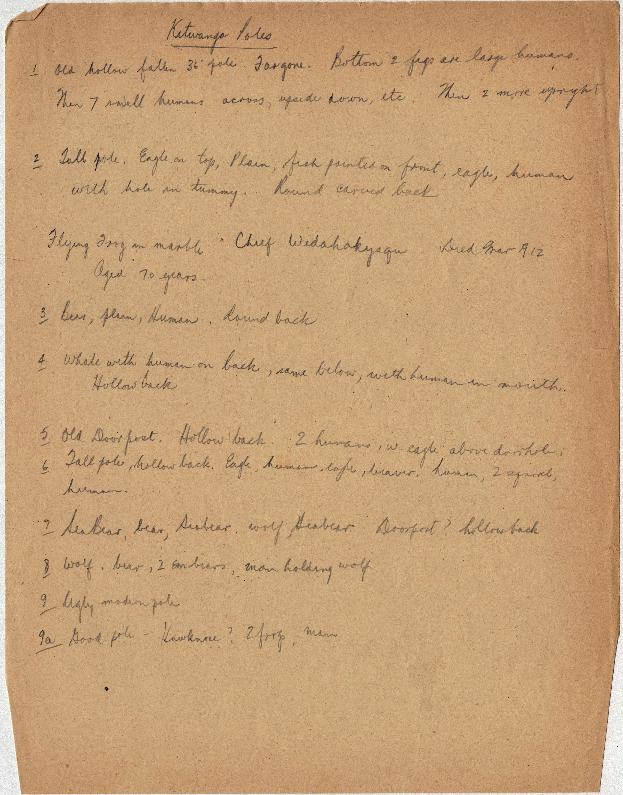 Kitwanga Poles
1 Old hollow fallen 36' pole Far gone. Bottom 2 figs are large humans
Then 7 small humans across, upside down, etc. Then 2 more upright
2 Tall pole. Eagle on top, Plain, fish painted on front, eagle, human
with hole in tummy. Round carved back
Flying Frog in marble Chief Widahakysqu Died Mar 1912
Aged 70 years.
3 Bear, plain, Human. Round back
4 Whale with human on back, same below, with human in mouth.
Hollow back
5 Old Doorpost. Hollow back. 2 humans, w eagle above doorhole.
6 Tall pole, hollow back. Eagle, human, eagle, beaver. human, 2 squirrel,
human.
7 SeaBear, bear, Seabear. wolf, Seabear Doorpost? hollow back
8 Wolf. bear, 2 bears, man holding wolf
9 Ugly modern pole
9a Good pole - Hawknose? 2 frogs, man